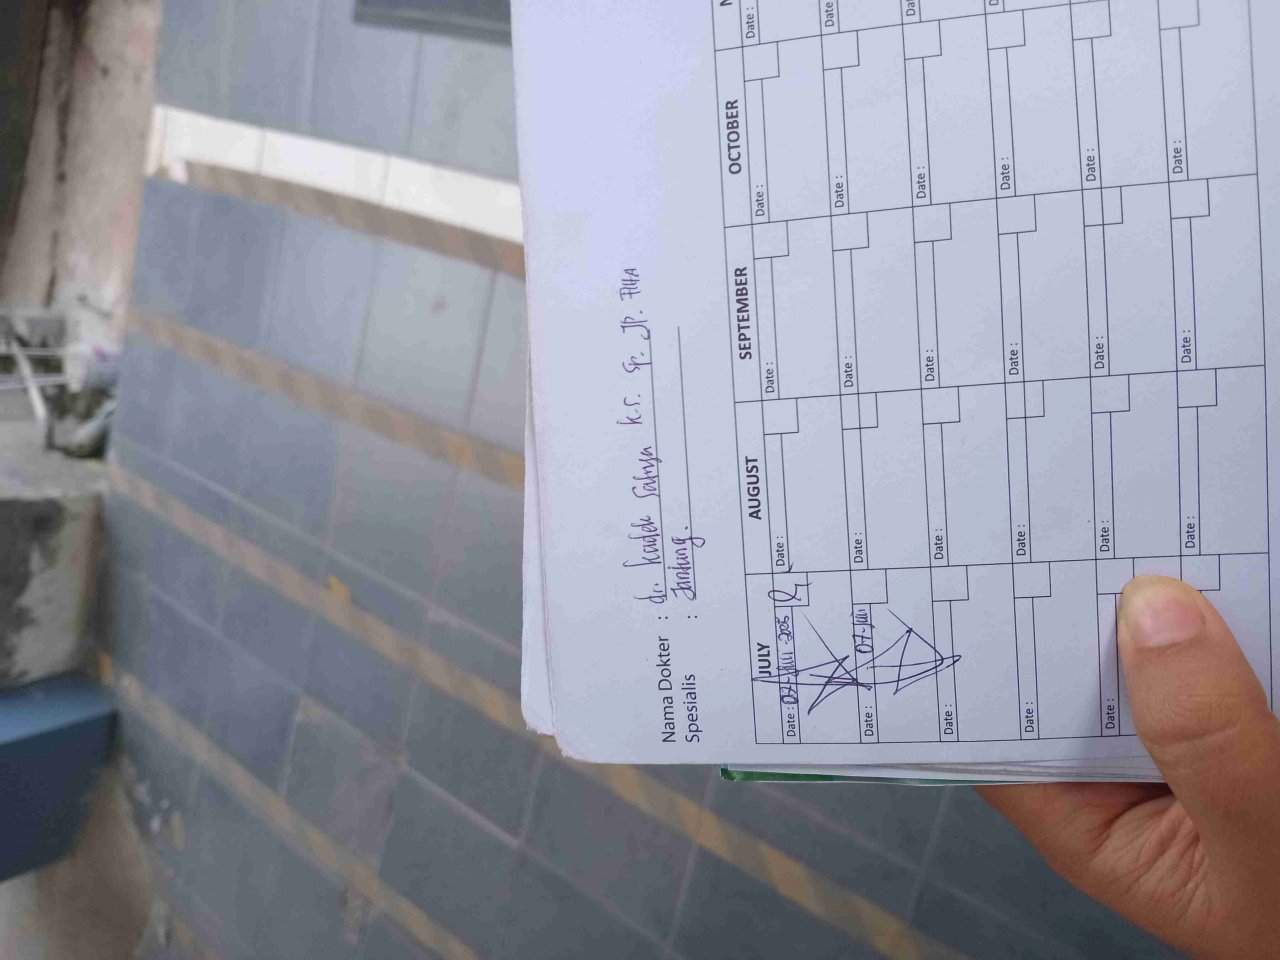 Nama Dokter : dr. Kadek Satya K.S. Sp. JP. FIHA
Spesialis : Jantung.
JULY AUGUST SEPTEMBER OCTOBER
Date : Date : Date : Date : Date :
Date : 07-Juli Date : Date : Date :
Date : Date : Date : Date :
Date : Date : Date : Date :
Date : Date : Date : Date :
Date : Date : Date :